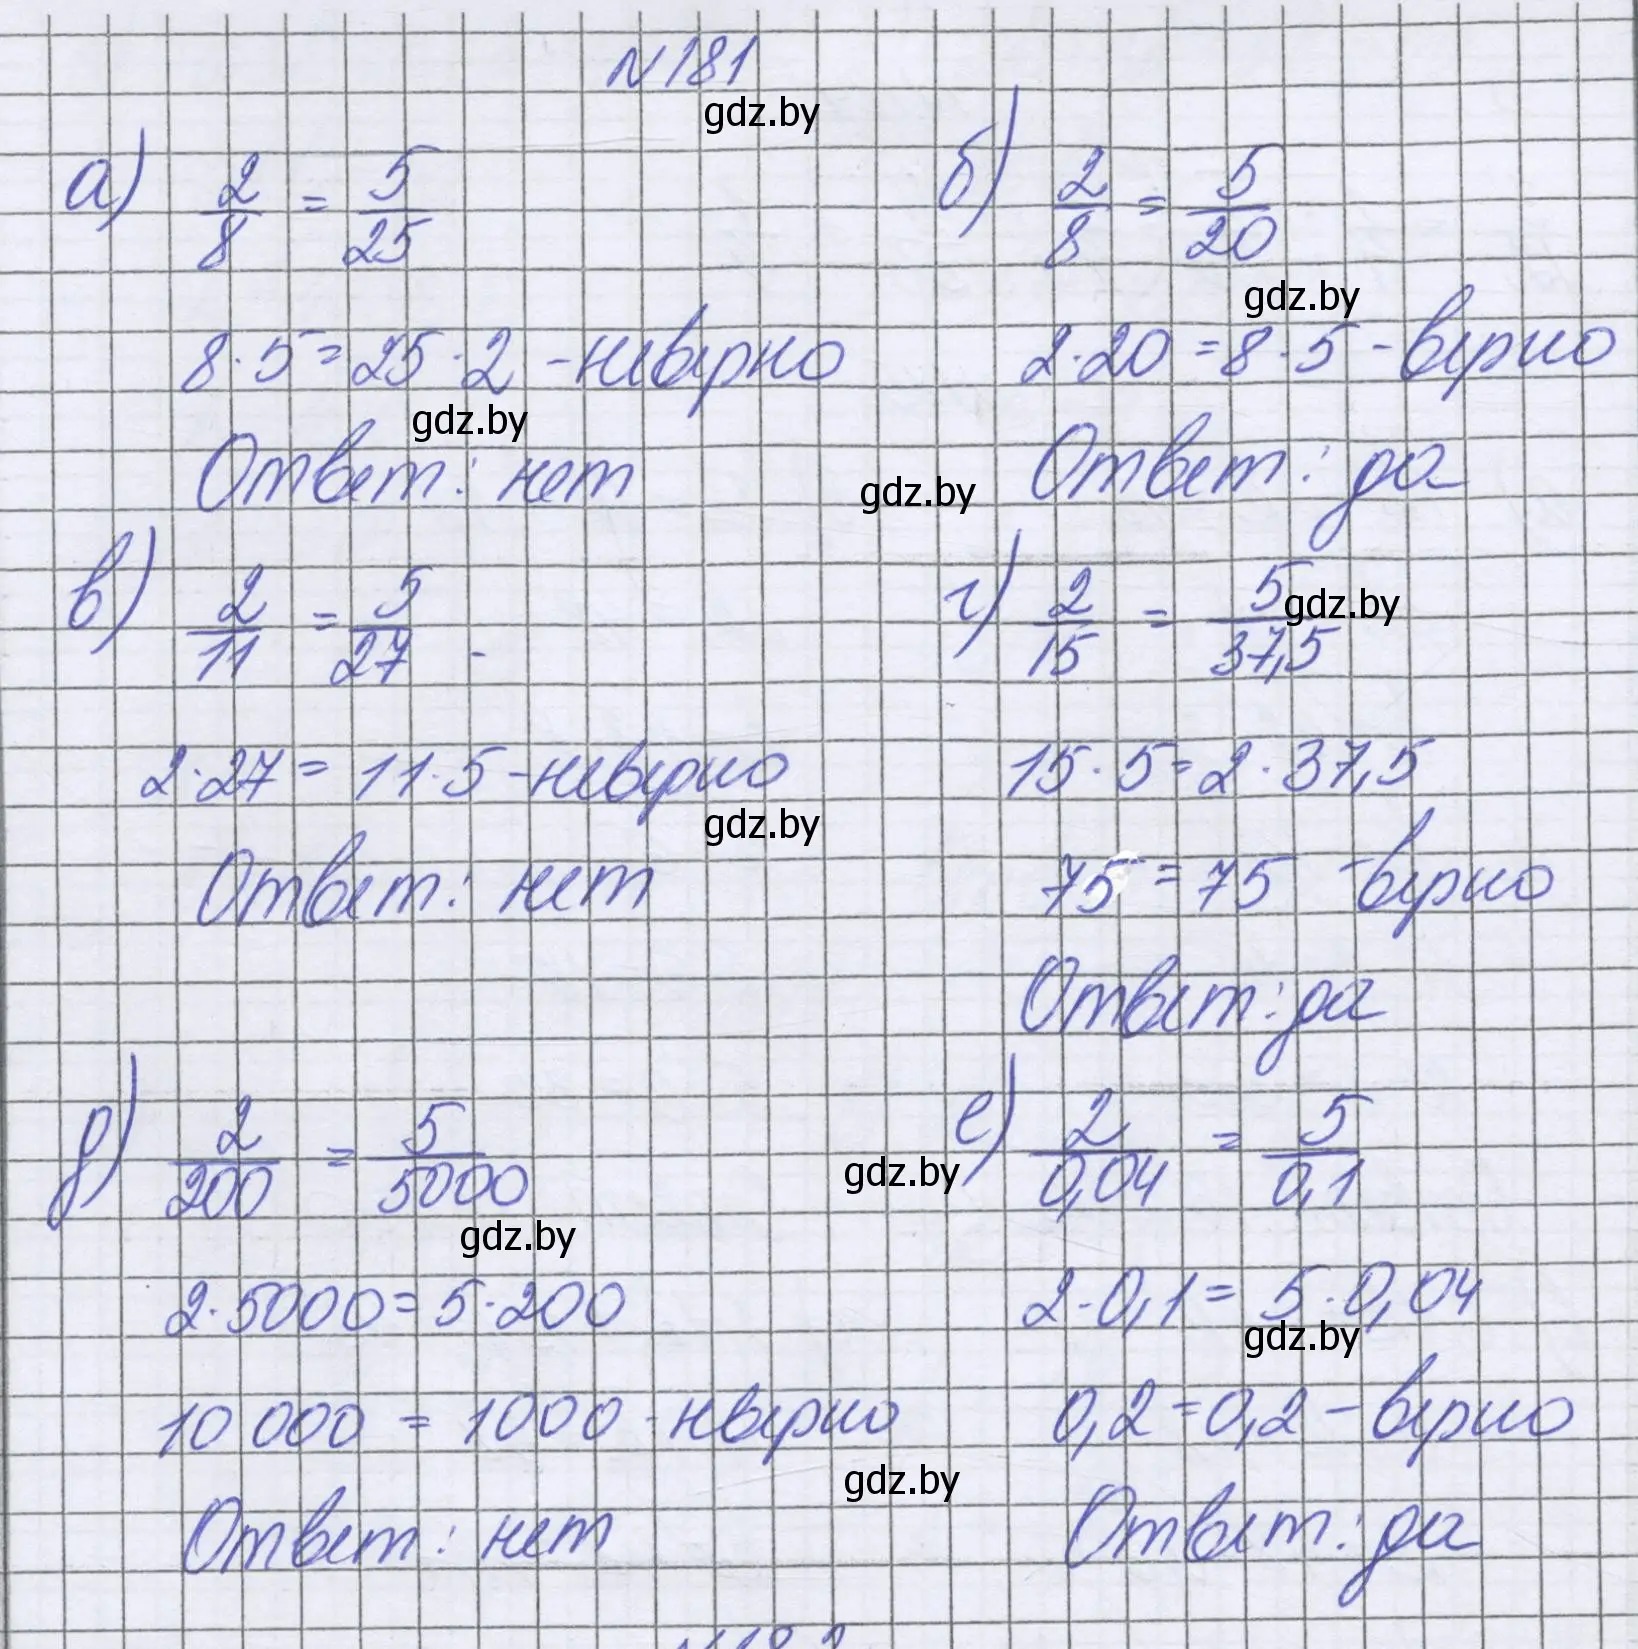 N 181
gdz.by
а) 2/8 = 5/25
8·5=25·2 -неверно
gdz.by
Ответ: нет
б) 2/8 = 5/20
gdz.by
2·20=8·5 -верно
gdz.by
Ответ: да
в) 2/11 = 5/27 -
2·27 = 11·5 -неверно
gdz.by
Ответ: нет
г) 2/15 = 5/37,5
gdz.by
15·5=2·37,5
75=75 -верно
Ответ: да
д) 2/200 = 5/5000
gdz.by
2·5000=5·200
10 000 = 1000 - неверно
gdz.by
Ответ: нет
е) 2/0,04 = 5/0,1
gdz.by
2·0,1= 5·0,04
gdz.by
0,2=0,2 - верно
Ответ: да